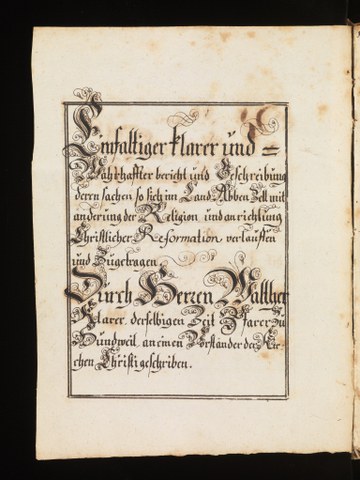 Einfaltiger klarer und =
Wahrhaffter bericht und Beschreibung
deren sachen so sich im Land Abben Zell mit
anderung der Religion und anrichtung
Christlicher Reformation verlauffen
und Zugetragen
Durch Herren Walther
Klarer. derselbigen Zeit Pfarer Zu
Hundweil an einen Vorstander der Kir-
chen Christi geschriben.